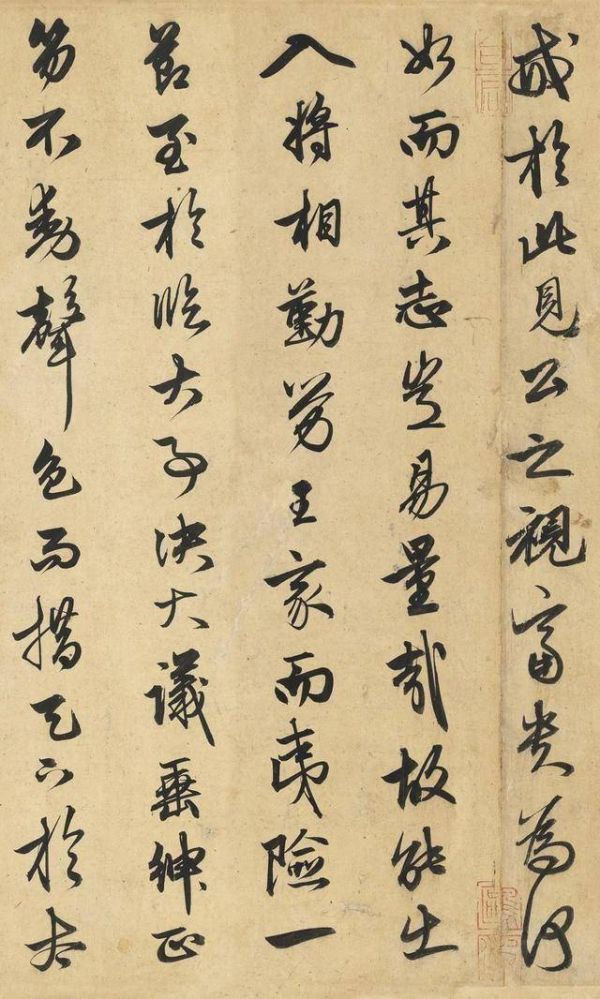 戒於此見公之視富貴為何
如而其志豈易量哉故能出
入將相勤勞王家而夷險一
節至於臨大事決大議垂紳正
笏不動聲色而措天下於太